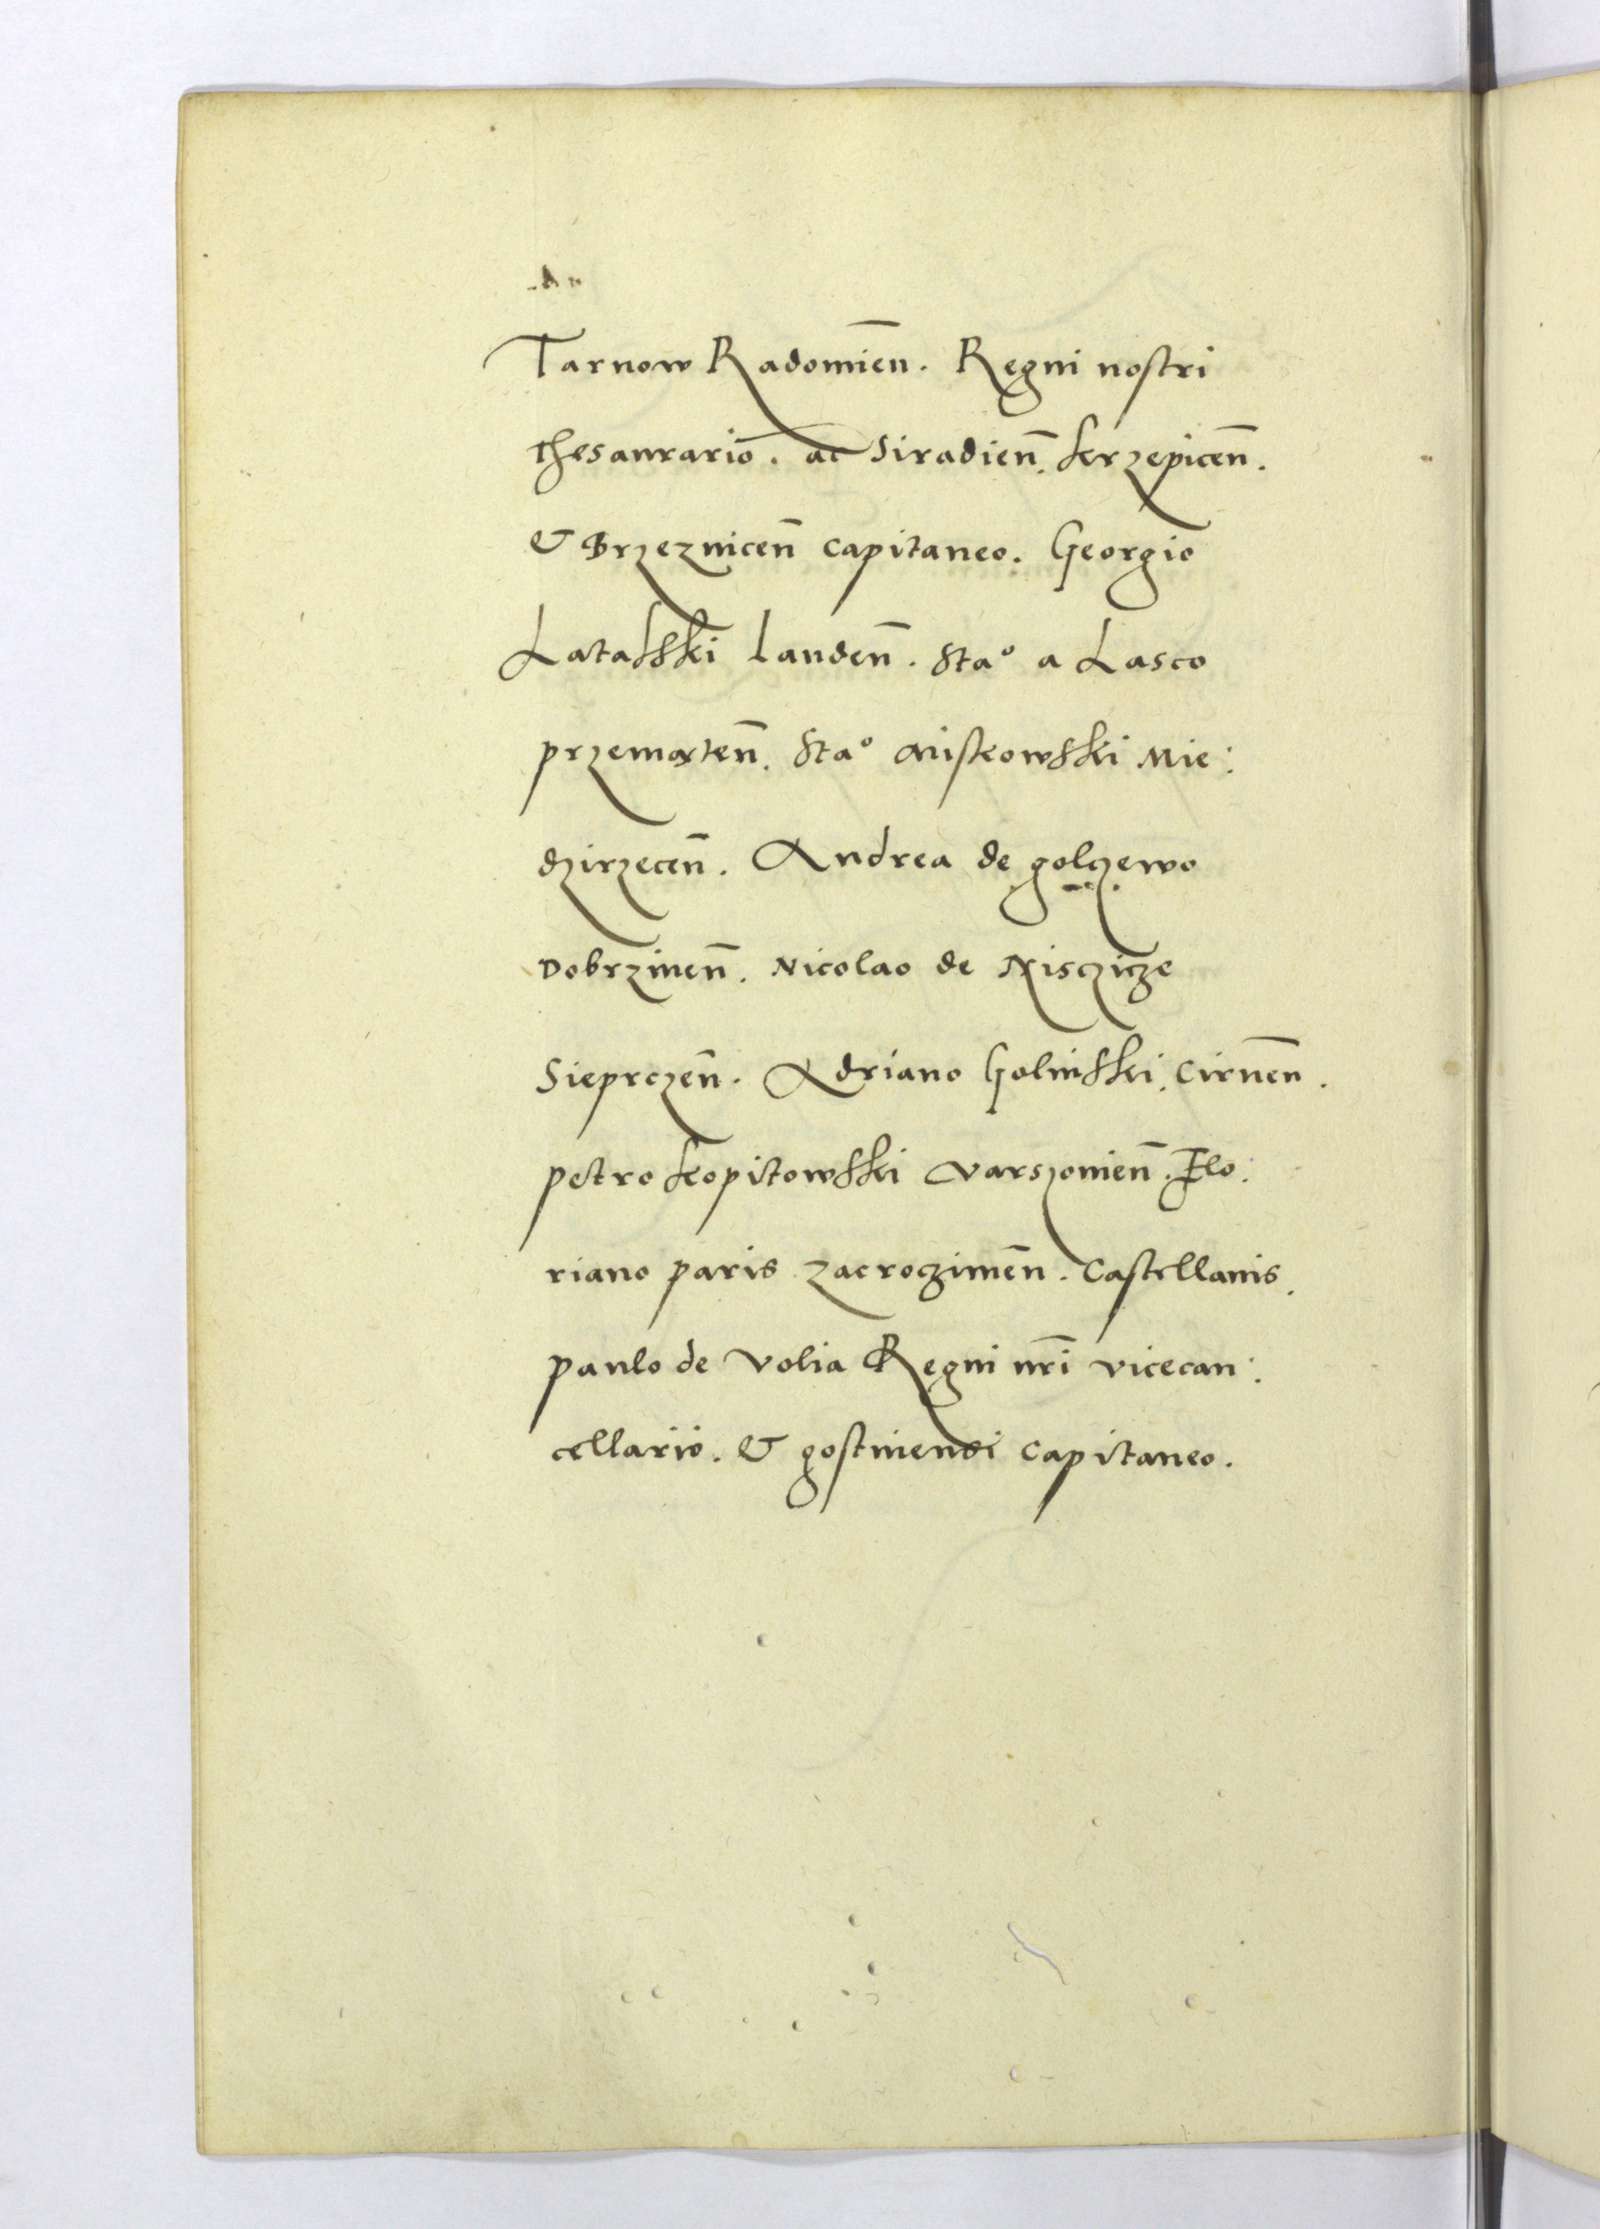 Tarnow Radomien̄. Regni nostri
thesaurario. ac Siradien̄. krzepicen̄.
& Brzeznicen̄ capitaneo. Georgio
Latalski landen̄. Sta° a Lasco
przemeten̄. Sta° Mistkowski Mie:
dzirzecen̄. Andrea de golczewo
Dobrzinen̄. Nicolao de Nisczicze
Sieprczen̄. Adriano Golinski. Cirnen̄.
petro kopitowski Varszouien̄. Flo:
riano paris zacroczimen̄. Castellanis.
paulo de Volia Regni nr̄i vicecan:
cellario. & gostinensi capitaneo.